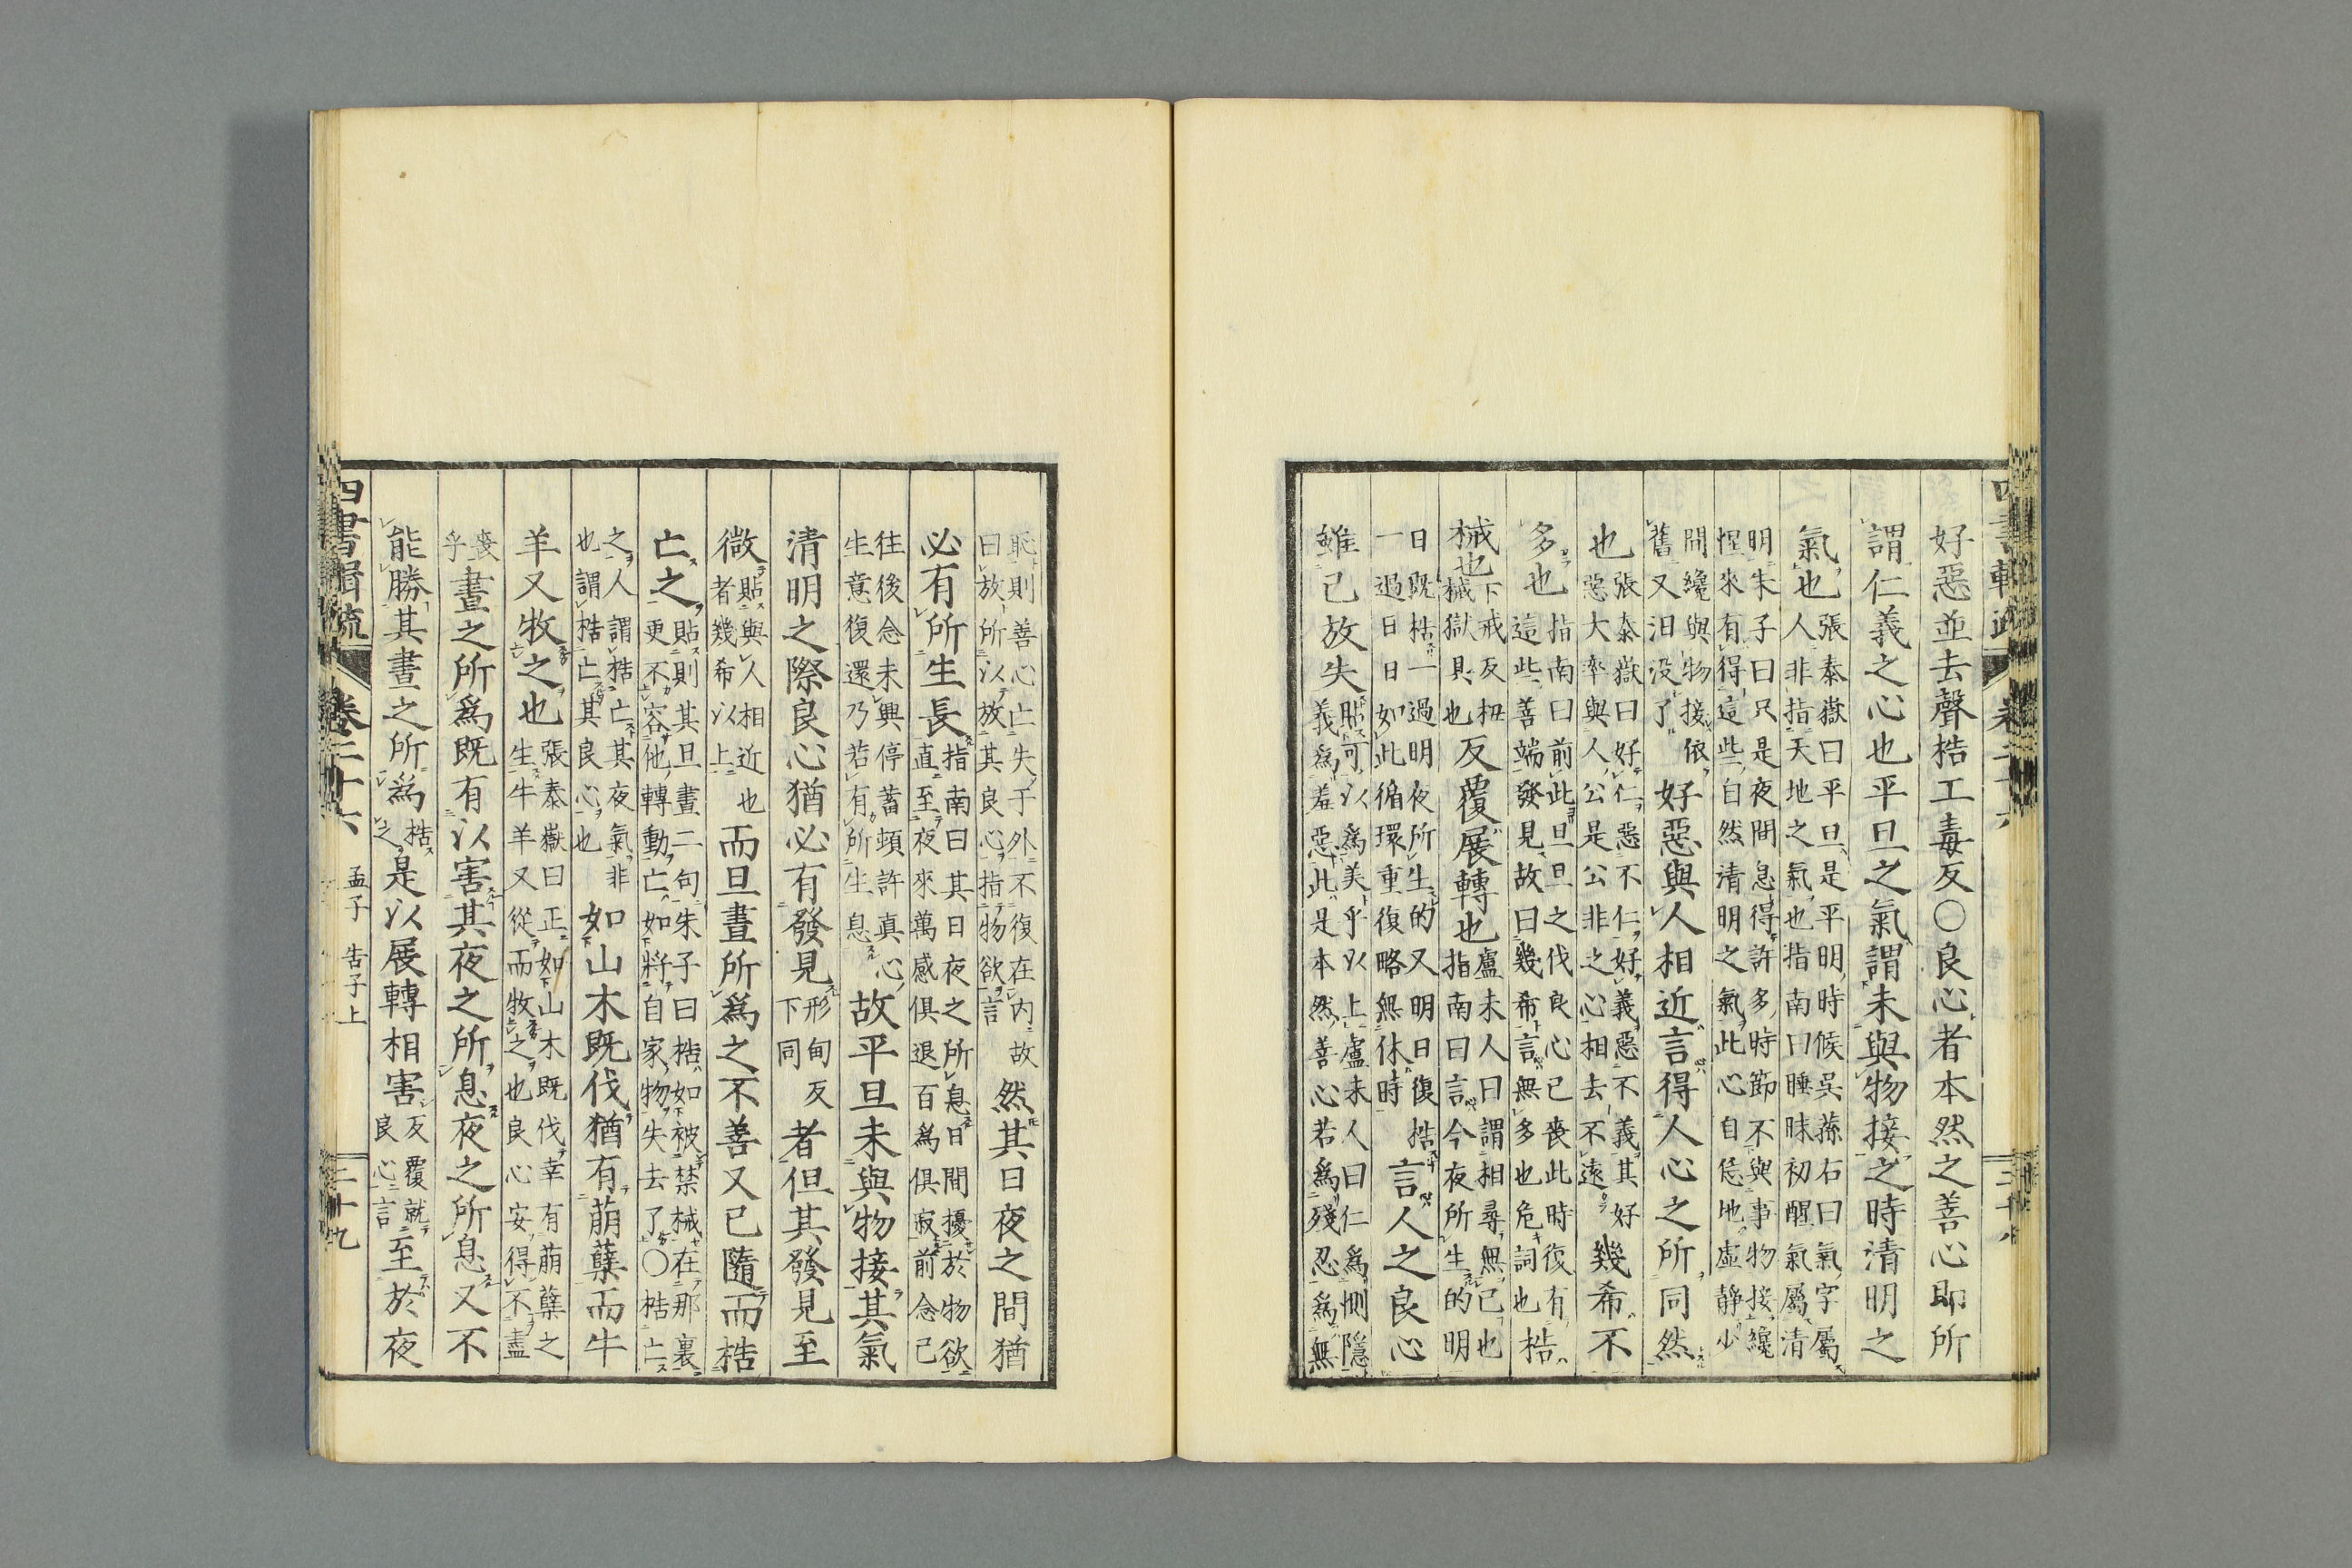 好惡並去聲梏工毒反○良心者本然之善心即所
謂仁義之心也平旦之氣謂未與物接之時清明之
氣也張泰嶽曰平旦是平明時候吳蓀右曰氣字屬
人非指天地之氣也指南曰睡昧初醒氣屬清
明朱子曰只是夜間息得許多時節不與事物接纔
惺來有得這些自然清明之氣此心自恁地虛静少
間纔與物接依
舊又汩没了好惡與人相近言得人心之所同然
也張泰嶽曰好仁惡不仁好義惡不義其好
惡大率與人公是公非之心相去不遠幾希不
多也指南曰前此旦旦之伐良心已喪此時復有
這些善端發見故曰幾希言無多也危詞也梏
械也下戒反杻
械獄具也反覆展轉也盧未人曰謂相尋無已也
指南曰言今夜所生的明
日既梏一過明夜所生的又明日復梏
一過日日如此循環重復略無休時言人之良心
雖已放失貼可以爲美乎以上盧未人曰仁爲惻隱
義爲羞惡此是本然善心若爲殘忍爲無
恥則善心亡失于外不復在内故
曰放所以放其良心指物欲言然其日夜之間猶
必有所生長指南曰其日夜之所息日間擾於物欲
直至夜來萬感俱退百爲俱寂前念已
往後念未興停蓄頓許真心
生意復還乃若有所生息故平旦未與物接其氣
清明之際良心猶必有發見形甸反
下同者但其發見至
微貼與人相近也
者幾希以上而旦晝所爲之不善又已隨而梏
亡之貼則其旦晝二句朱子曰梏如被禁械在那裏
更不容他轉動亡如將自家物失去了○梏亡
之人謂梏亡其夜氣非
也謂梏亡其良心也如山木既伐猶有萌蘖而牛
羊又牧之也張泰嶽曰正如山木既伐幸有萌蘖之
生牛羊又從而牧之也良心安得不盡
喪
乎晝之所爲既有以害其夜之所息夜之所息又不
能勝其晝之所爲梏
之是以展轉相害反覆就
良心言至於夜
四書輯疏 卷二十六 孟子 告子上 二十九